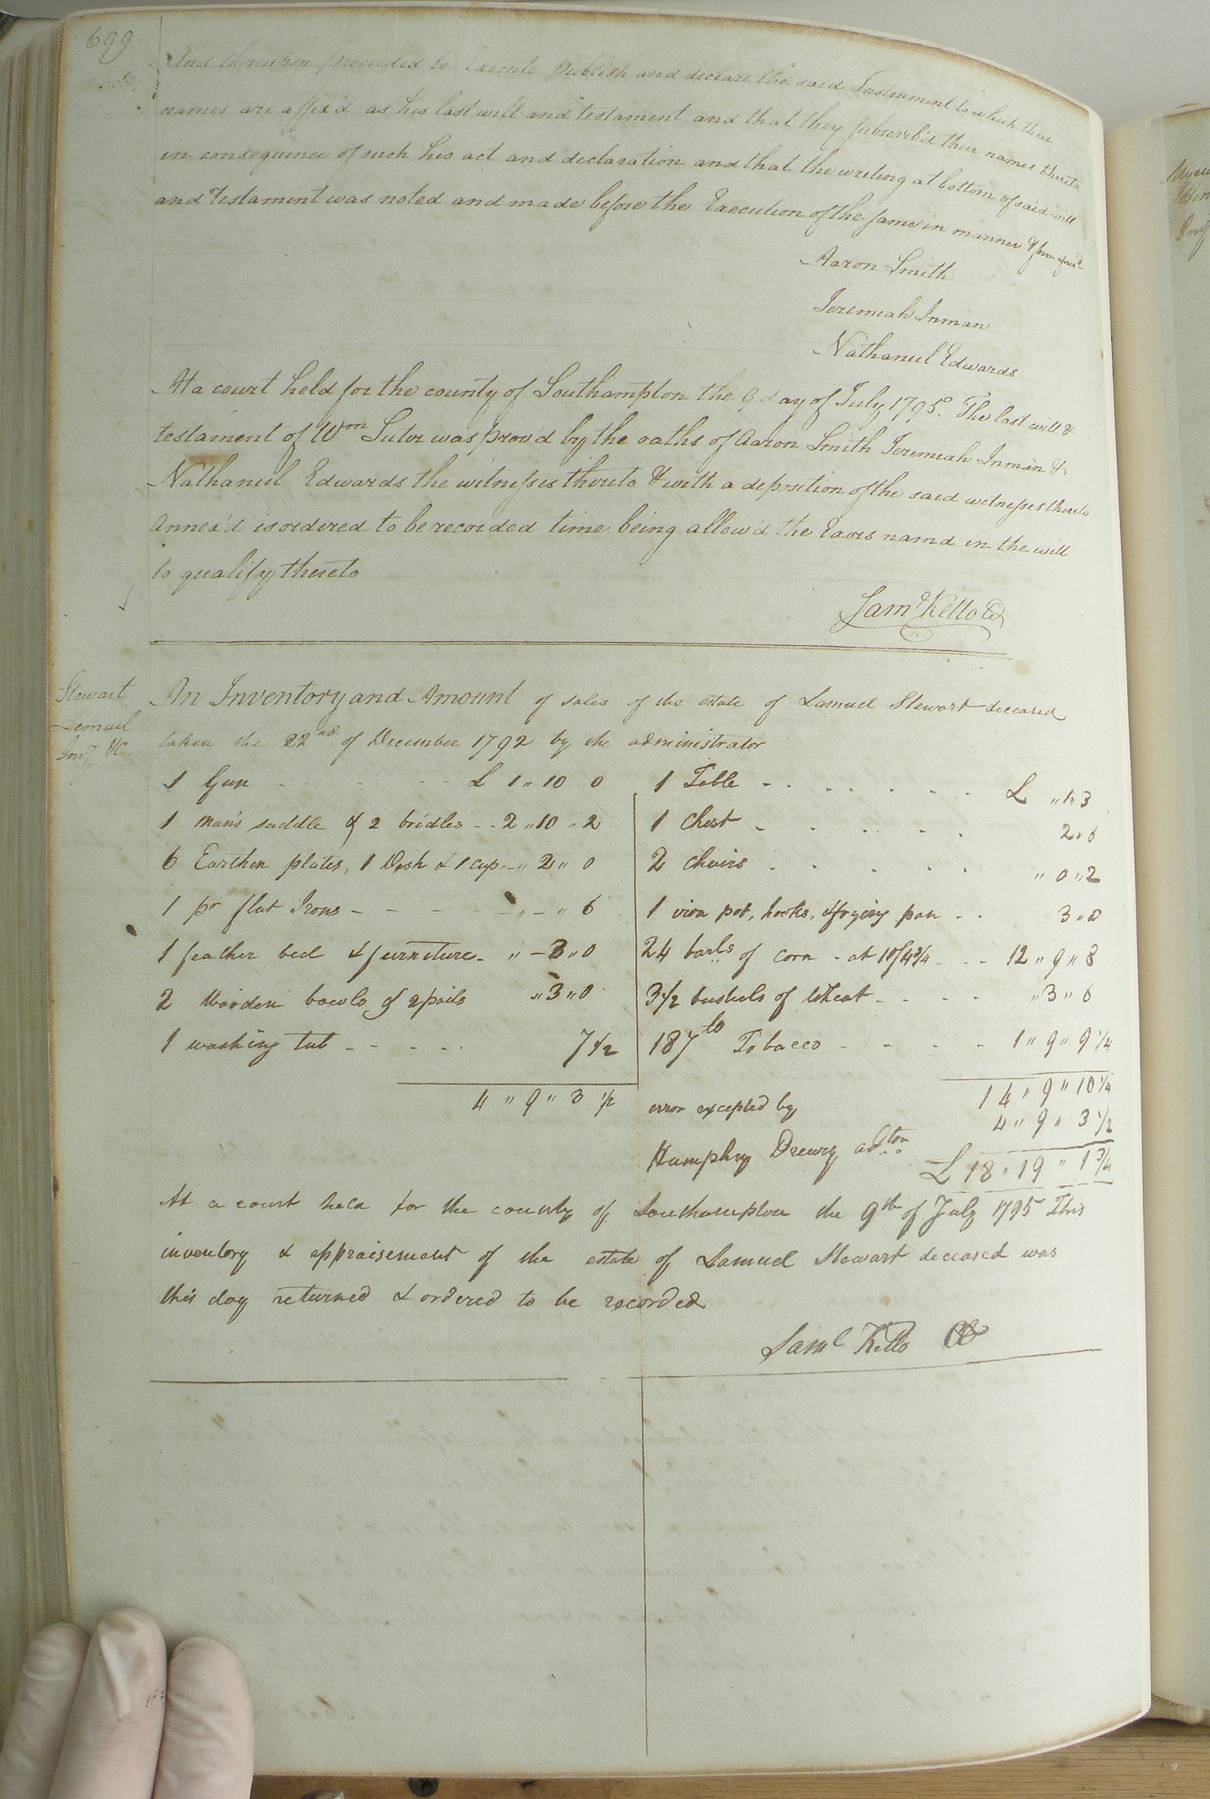 699
And thereupon proceeded to Execute Publish and declare the said Instrument to which their
names are affix'd as his last will and testament and that they subscrib'd their names thereto
in consequence of such his act and declaration and that the writing at bottom of said will
and Testament was noted and made before the Execution of the same in manner & form afores.d
Aaron Smith
Jeremiah Inman
Nathaniel Edwards
At a court held for the county of Southampton the 9 day of July 1795. The last will &
testament of Wm Suter was prov'd by the oaths of Aaron Smith Jeremiah Inman &
Nathaniel Edwards the witnesses thereto & with a deposition of the said witnesses thereto
Annex'd is ordered to be recorded time being allow'd the Exors namd in the will
to qualify thereto
Saml Kello CC
Stewart
Lemuel
Invy &c.
An Inventory and Amount of sales of the estate of Lamuel Stewart deceased
taken the 22nd of December 1792 by the administrator
1 Gun - - - £ 1 " 10 0
1 man's saddle & 2 bridles - - 2 " 10 " 2
6 Earthen plates, 1 Dish & 1 cup - " 2 " 0
1 pr flat Irons - - - - " - " 6
1 feather bed & furniture - " - 3 " 0
2 Wooden bowls & 2 pails " 3 " 0
1 washing tub - - - - 7 1/2
4 " 9 " 3 1/2
1 Table - - - - - - - £ " 1 " 3
1 Chest - - - - - 2 " 6
2 chairs - - - - - " 0 " 2
1 iron pot, hooks, & frying pan - - 3 " 0
24 barls of corn - at 10/4 3/4 - - - 12 " 9 " 8
3 1/2 bushels of Wheat - - - - " 3 " 6
187 lb Tobacco - - - - - 1 " 9 " 9 1/4
14 " 9 " 10 1/4
error excepted by
4 " 9 " 3 1/2
Humphry Drewry adtor
£ 18 " 19 " 1 3/4
At a court held for the county of Southampton the 9th of July 1795 This
inventory & appraisement of the estate of Lamuel Stewart deceased was
this day returned & ordered to be recorded
Saml Kello CC